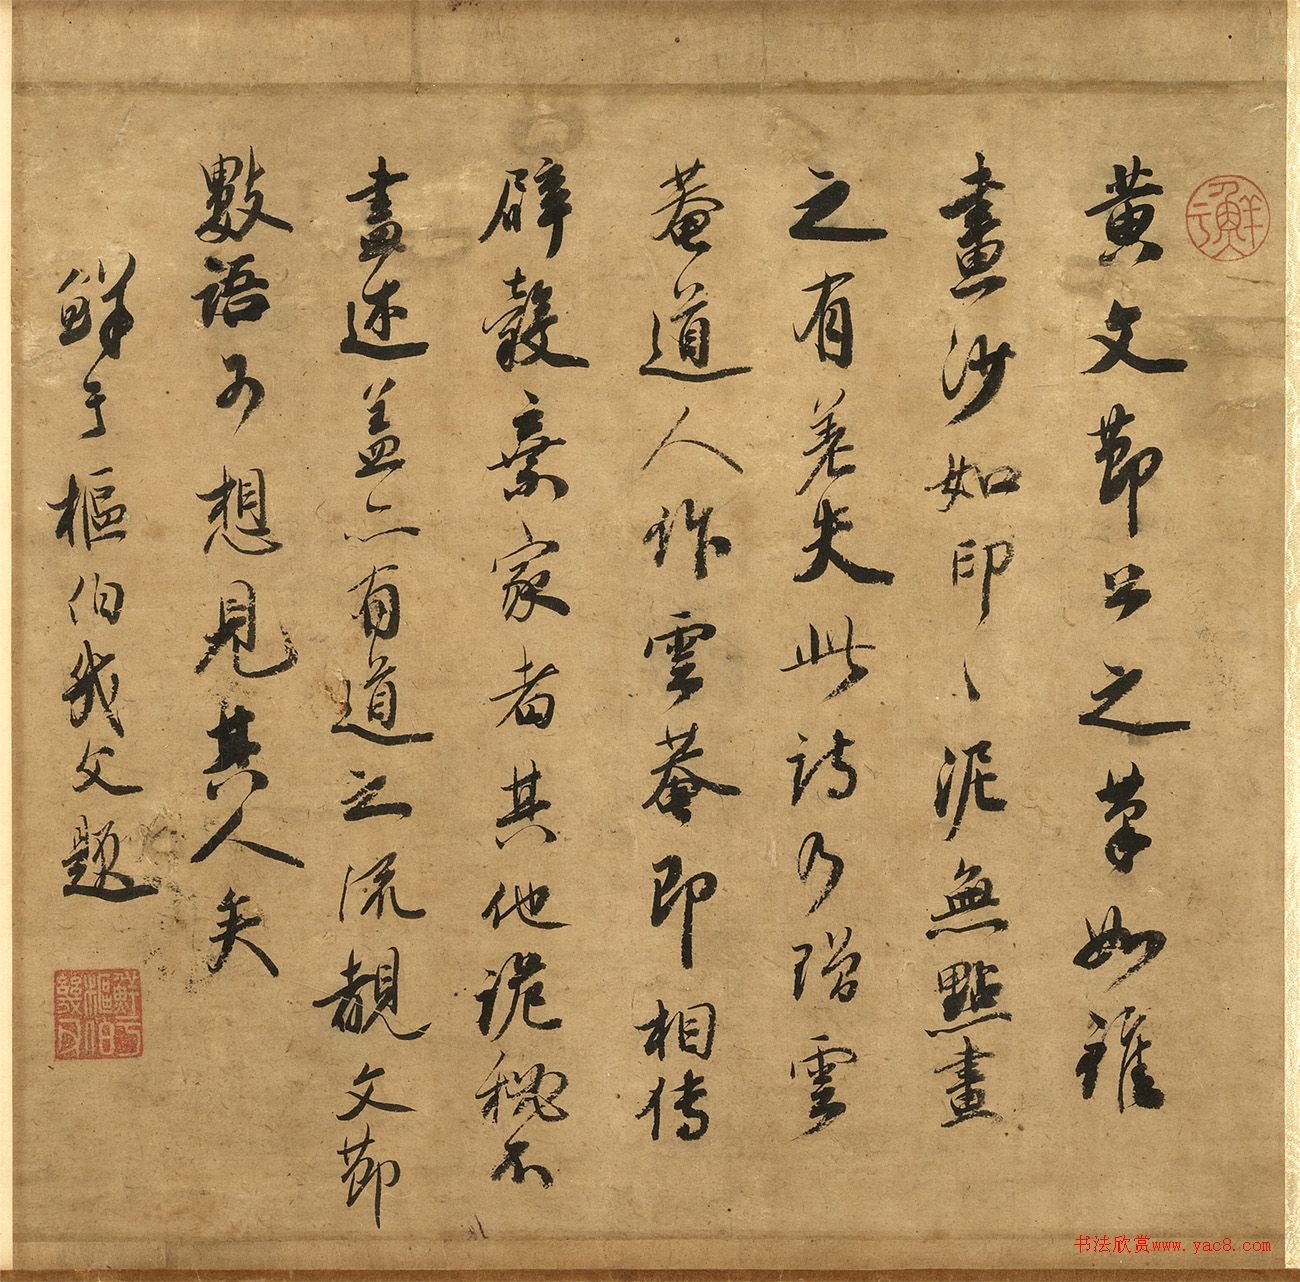 鮮于
黄文節公之筆如錐
畫沙如印〻泥無點畫
之有差失此詩乃贈雲
菴道人作雲菴即相傳
辟穀棄家者其他詭秘不
盡述盖亦有道之流觀文節
數語可想見其人矣
鮮于樞伯幾父題
鮮于樞伯幾父
书法欣赏www.yac8.com